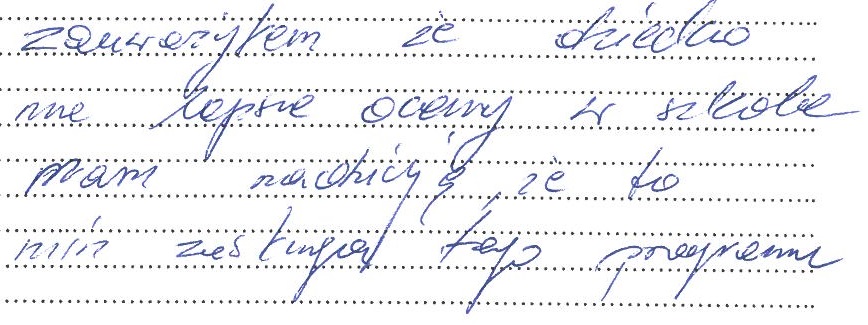 zauważyłem że dziecko
ma lepsze oceny w szkole
mam nadzieję, że to
min zasługa tego programu